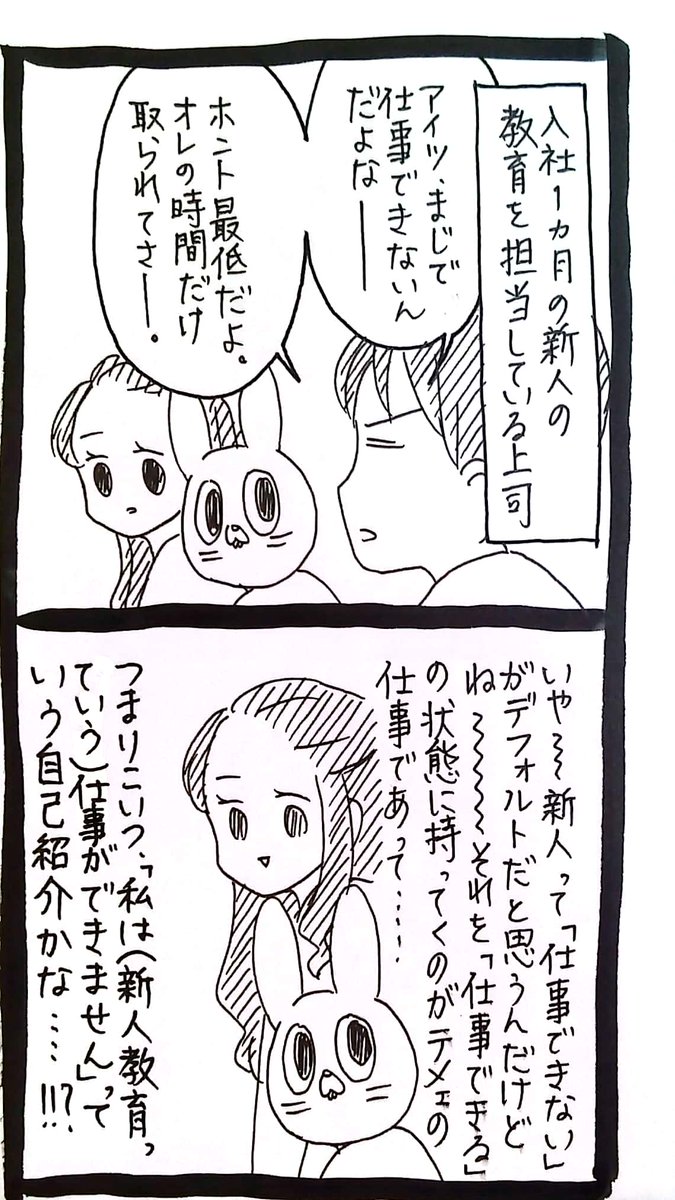 入社1カ月の新人の
教育を担当している上司
アイツ、まじで
仕事できないん
だよなー
ホント最低だよ。
オレの時間だけ
取られてさー。
いや～新人って「仕事できない」
がデフォルトだと思うんだけど
ね～～～～それを「仕事できる」
の状態に持ってくのがテメェの
仕事であって……
つまりこいつ、「私は(新人教育っ
ていう)仕事ができません」って
いう自己紹介かな……!!?